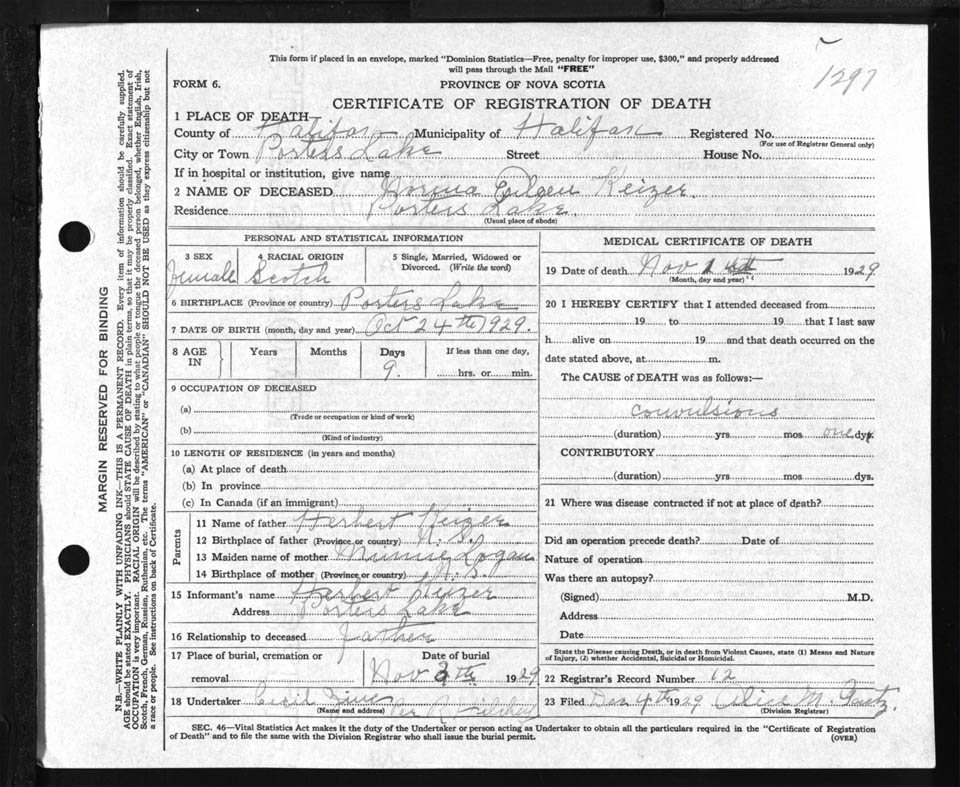 This form if placed in an envelope, marked "Dominion Statistics—Free, penalty for improper use, $300," and properly addressed
will pass through the Mail "FREE"
1297
FORM 6.
PROVINCE OF NOVA SCOTIA
CERTIFICATE OF REGISTRATION OF DEATH
1 PLACE OF DEATH
County of Halifax Municipality of Halifax Registered No.
(For use of Registrar General only)
City or Town Porters Lake Street House No.
If in hospital or institution, give name
2 NAME OF DECEASED Keizer
Residence Porters Lake
(Usual place of abode)
PERSONAL AND STATISTICAL INFORMATION
3 SEX 4 RACIAL ORIGIN 5 Single, Married, Widowed or
Divorced. (Write the word)
Female Scotch
6 BIRTHPLACE (Province or country) Porters Lake
7 DATE OF BIRTH (month, day and year) Oct 24th 1929.
8 AGE IN Years Months Days If less than one day,
9. hrs. or min.
9 OCCUPATION OF DECEASED
(a)
(Trade or occupation or kind of work)
(b)
(Kind of industry)
10 LENGTH OF RESIDENCE (in years and months)
(a) At place of death
(b) In province
(c) In Canada (if an immigrant)
Parents
11 Name of father Herbert Keizer
12 Birthplace of father (Province or country) N. S.
13 Maiden name of mother Minnie Logan
14 Birthplace of mother (Province or country) N. S.
15 Informant's name Herbert Keizer
Address Porters Lake
16 Relationship to deceased Father
17 Place of burial, cremation or Date of burial
removal Nov 1929
18 Undertaker Cecil
(Name and address)
MEDICAL CERTIFICATE OF DEATH
19 Date of death Nov 1929
(Month, day and year)
20 I HEREBY CERTIFY that I attended deceased from
19 to 19 that I last saw
h alive on 19 and that death occurred on the
date stated above, at m.
The CAUSE of DEATH was as follows:—
convulsions
(duration) yrs mos one dys.
CONTRIBUTORY
(duration) yrs. mos dys.
21 Where was disease contracted if not at place of death?
Did an operation precede death? Date of
Nature of operation
Was there an autopsy?
(Signed) M.D.
Address
Date
State the Disease causing Death, or in death from Violent Causes, state (1) Means and Nature
of Injury, (2) whether Accidental, Suicidal or Homicidal.
22 Registrar's Record Number 12
23 Filed Dec 4th 1929 Alice M
(Division Registrar)
SEC. 46—Vital Statistics Act makes it the duty of the Undertaker or person acting as Undertaker to obtain all the particulars required in the "Certificate of Registration
of Death" and to file the same with the Division Registrar who shall issue the burial permit. (OVER)
MARGIN RESERVED FOR BINDING
N.B.—WRITE PLAINLY WITH UNFADING INK—THIS IS A PERMANENT RECORD. Every item of information should be carefully supplied.
AGE should be stated EXACTLY. PHYSICIANS should STATE CAUSE OF DEATH in plain terms, so that it may be properly classified. Exact statement of
OCCUPATION is very important. RACIAL ORIGIN will be described by stating to what people or tongue the deceased person belonged, whether English, Irish,
Scotch, French, German, Russian, Ruthenian, etc. The terms "AMERICAN" or "CANADIAN" SHOULD NOT BE USED as they express citizenship but not
a race or people. See instructions on back of Certificate.